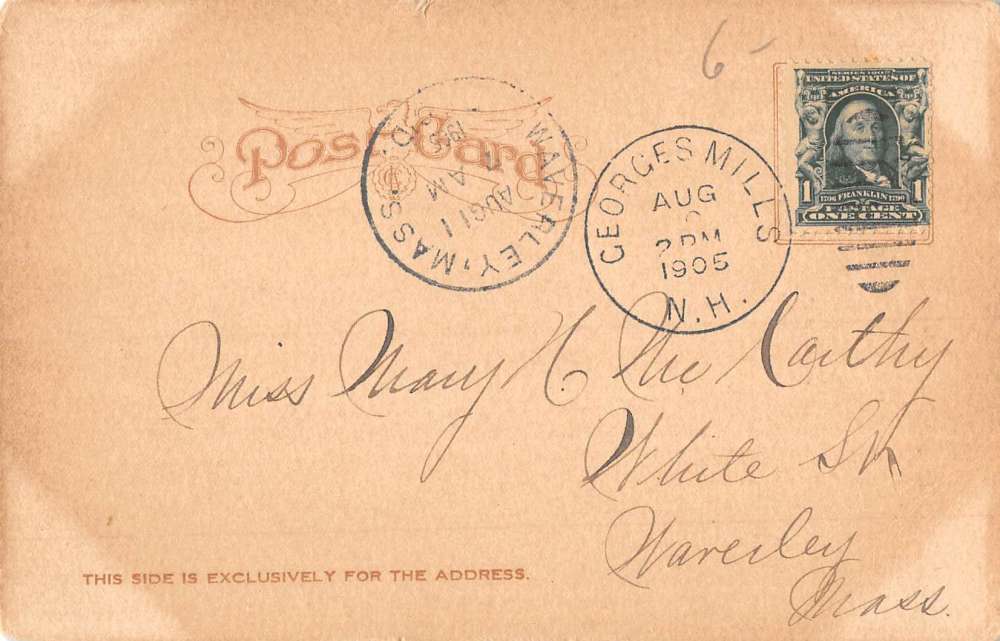 6-
SERIES 1902
UNITED STATES OF
AMERICA
1 FRANKLIN 1
1706 1790
POSTAGE
ONE CENT
Post Card
WAVERLEY, MASS.
AUG 11
AM
GEORGES MILLS
AUG
2 PM
1905
N.H.
Miss Mary H. Mc Carthy
White St
Waverley
Mass.
THIS SIDE IS EXCLUSIVELY FOR THE ADDRESS.